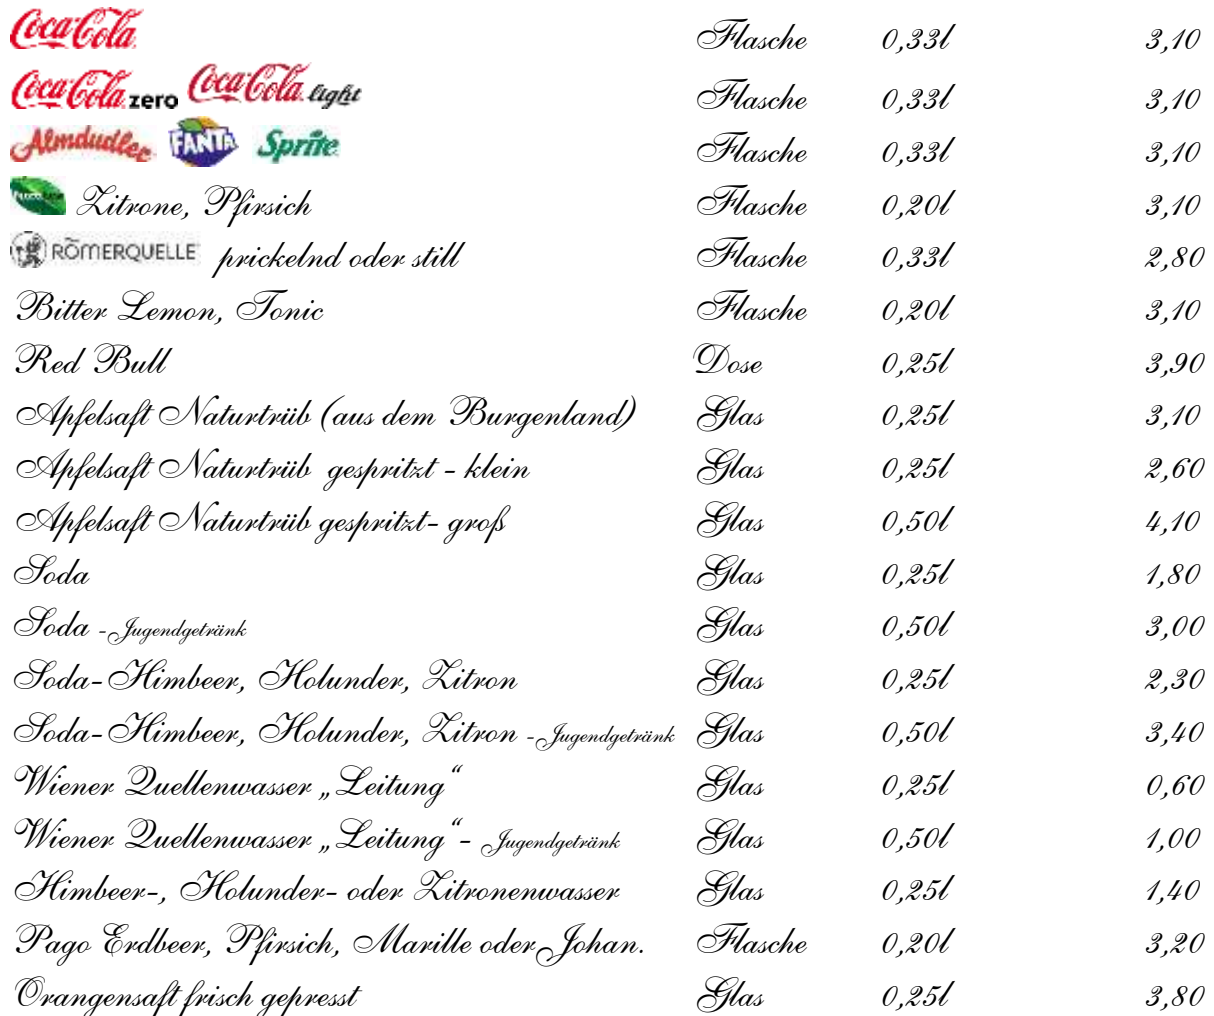 Coca-Cola Flasche 0,33l 3,10
Coca-Cola zero Coca-Cola light Flasche 0,33l 3,10
Almdudler FANTA Sprite Flasche 0,33l 3,10
Zitrone, Pfirsich Flasche 0,20l 3,10
RÖMERQUELLE prickelnd oder still Flasche 0,33l 2,80
Bitter Lemon, Tonic Flasche 0,20l 3,10
Red Bull Dose 0,25l 3,90
Apfelsaft Naturtrüb (aus dem Burgenland) Glas 0,25l 3,10
Apfelsaft Naturtrüb gespritzt - klein Glas 0,25l 2,60
Apfelsaft Naturtrüb gespritzt- groß Glas 0,50l 4,10
Soda Glas 0,25l 1,80
Soda - Jugendgetränk Glas 0,50l 3,00
Soda-Himbeer, Holunder, Zitron Glas 0,25l 2,30
Soda-Himbeer, Holunder, Zitron - Jugendgetränk Glas 0,50l 3,40
Wiener Quellenwasser „Leitung“ Glas 0,25l 0,60
Wiener Quellenwasser „Leitung“- Jugendgetränk Glas 0,50l 1,00
Himbeer-, Holunder- oder Zitronenwasser Glas 0,25l 1,40
Pago Erdbeer, Pfirsich, Marille oder Johan. Flasche 0,20l 3,20
Orangensaft frisch gepresst Glas 0,25l 3,80